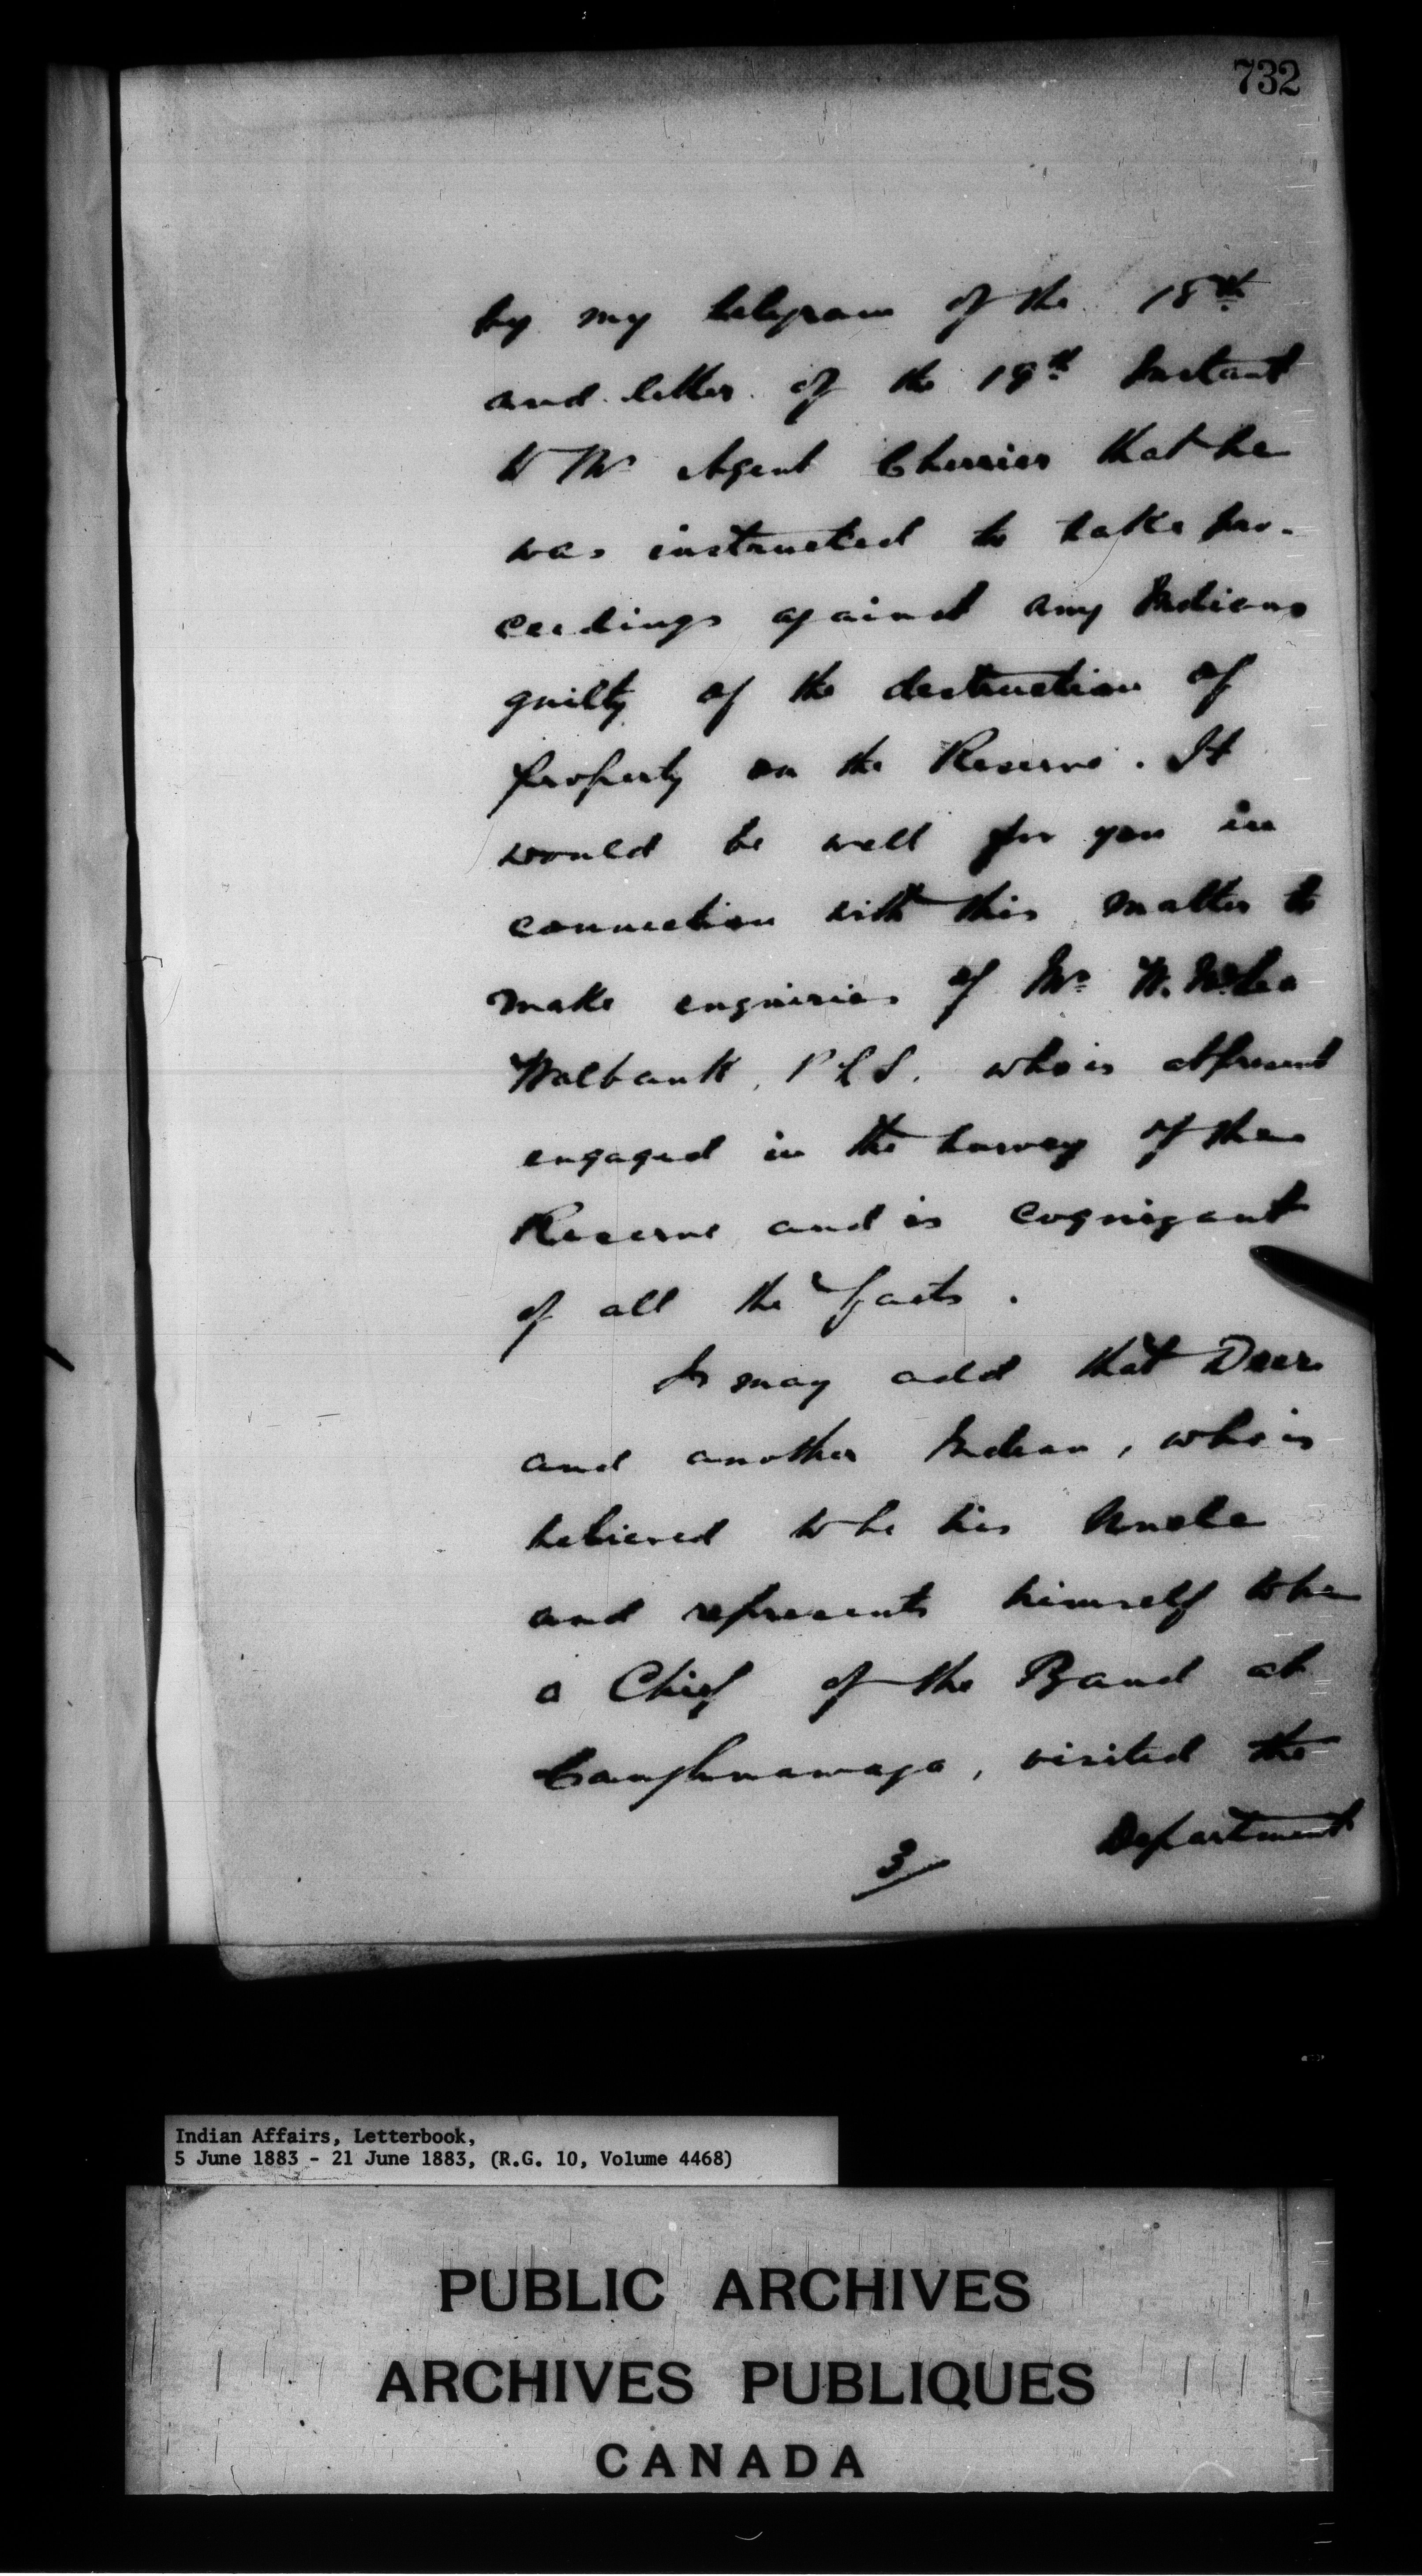 732
by my telegram of the 18th
and letter of the 19th Instant
to Mr Agent Cherrier that he
was instructed to take pro-
ceedings against any Indians
guilty of the destruction of
property on the Reserve. It
would be well for you in
connection with this matter to
make enquiries of Mr W. McLea
Walbank, P.L.S. who is at present
engaged in the survey of the
Reserve and is cognizant
of all the facts.
I may add that Deer
and another Indian, who is
believed to be his Uncle
and represents himself to be
a Chief of the Band at
Caughnawaga, visited the
Department
3
Indian Affairs, Letterbook,
5 June 1883 - 21 June 1883, (R.G. 10, Volume 4468)
PUBLIC ARCHIVES
ARCHIVES PUBLIQUES
CANADA